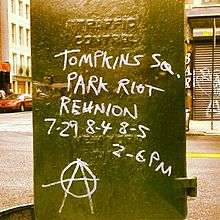 TRAFFIC
CONTROL
TOMPKINS SQ.
PARK RIOT
REUNION
7-29 8-4 8-5
2-6PM